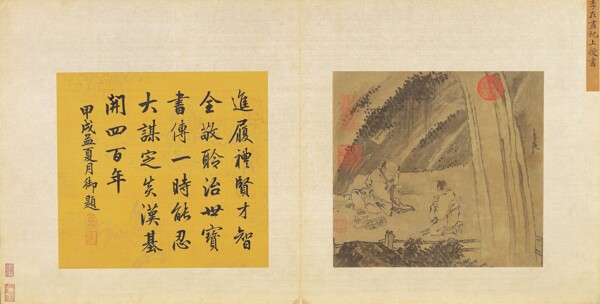 李在畫圯上授書
進履禮賢才智
全敬聆治世寶
書傳一時能忍
大謀定炎漢基
開四百年
甲戌孟夏月御題